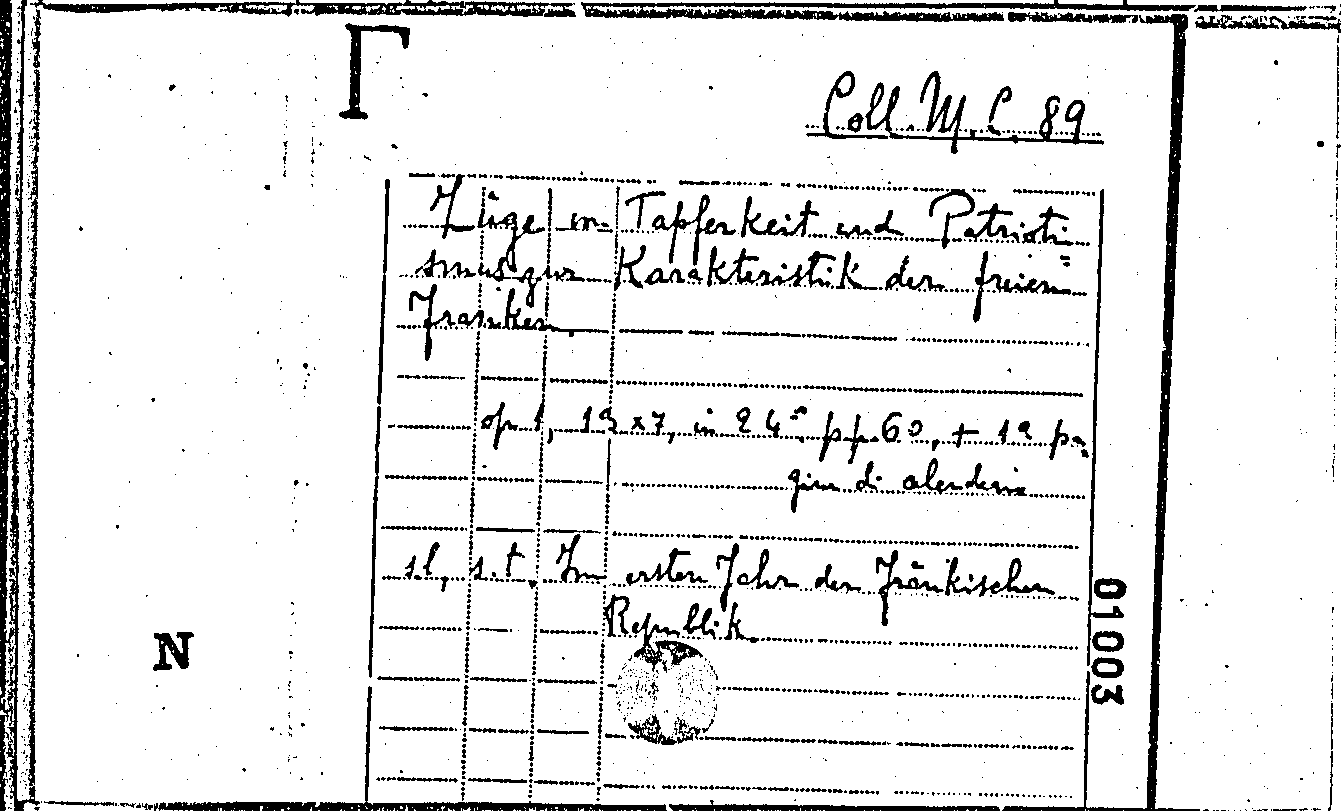 Coll. M. C. 89
Züge von Tapferkeit und Patrioti=
smus zur Karakteristik der freien
Franken.
op. 1, 13 x 7, in 24° pp. 60, + 12 pa=
gine di
s.l., s.t. Im ersten Jahr der Fränkischen
Republik.
N
01003